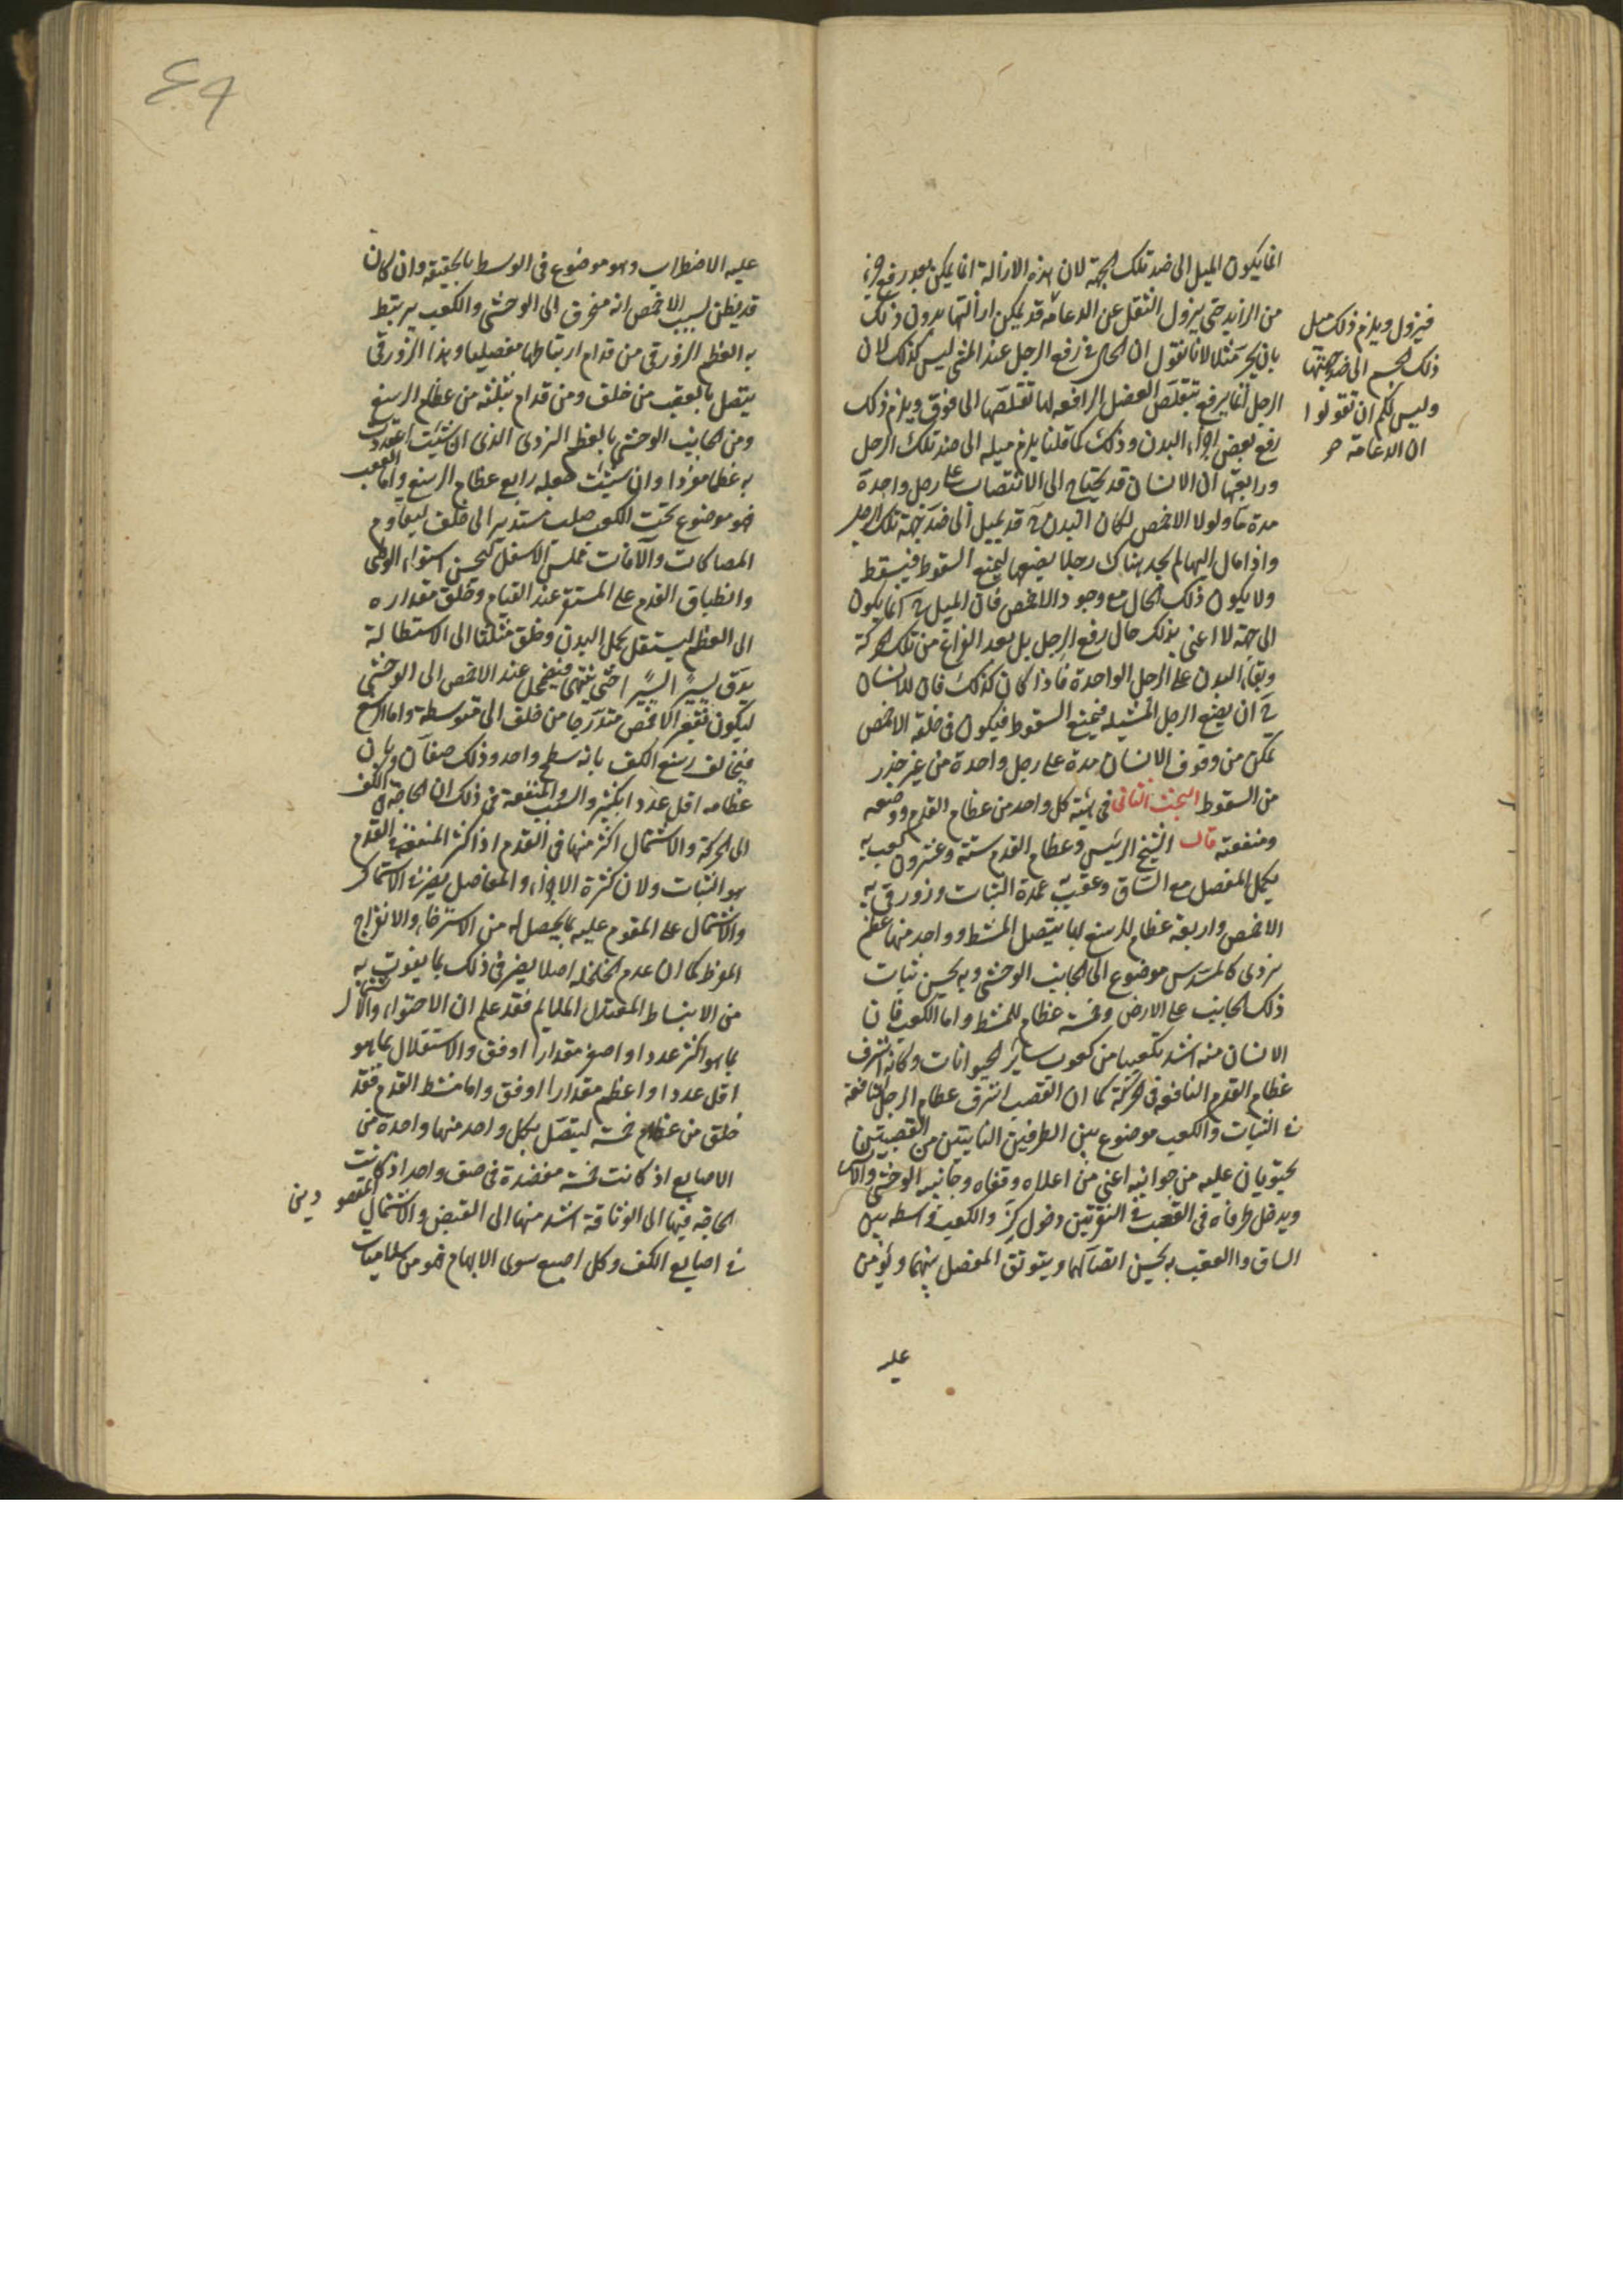 انما يكون الميل الى ضد تلك الجهة لان هذه الازالة انما يمكن بعد رفع جزء
من الزايد حتى يزول الثقل عن الدعامة قد يمكن ازالتها بدون ذلك
بان يجر مثلا لانا نقول ان الحال فى رفع الرجل عند المشى ليس كذلك لان
الرجل انما يرفع بتقلص العضل الرافعه لها تقلصها الى فوق ويلزم ذلك
رفع بعض اجزاء البدن وذلك كما قلنا يلزم ميله الى ضد تلك الرجل
ورابعتها ان الانسان قد يحتاج الى الانتصاب على رجل واحدة
مدة ما ولولا الاخمص لكان البدن ح قد يميل الى ضد جهة تلك الرجل
واذا مال اليها لم يجد هناك رجلا يضعها ليمنع السقوط فيسقط
ولا يكون ذلك الحال مع وجود الاخمص فان الميل ح انما يكون
الى جهة لا اعنى بذلك حال رفع الرجل بل بعد الفراغ من تلك الحركة
وبقاء البدن على الرجل الواحدة فاذا كان كذلك فان للانسان
ح ان يضع الرجل المشيله فيمنع السقوط فيكون فى خلقة الاخمص
تمكن من وقوف الانسان مدة على رجل واحدة من غير حذر
من السقوط البحث الثانى فى هيئة كل واحد من عظام القدم ووضعه
ومنفعته قال الشيخ الرئيس وعظام القدم ستة وعشرون كعب به
يكمل المفصل مع الساق وعقب به عمدة الثبات وزورقى به
الاخمص واربعة عظام للرسغ بها يتصل المشط وواحد منها عظم
نردى كالمسدس موضوع الى الجانب الوحشى وبه يحسن ثبات
ذلك الجانب على الارض وخمسة عظام للمشط واما الكعب فان
الانسان منه اشد تكعيبا من كعوب ساير الحيوانات وكانه اشرف
عظام القدم النافعه فى الحركة كما ان العقب اشرف عظام الرجل النافعة
فى الثبات والكعب موضوع بين الطرفين الناتيتين من القصبتين
يحتويان عليه من جوانبه اعنى من اعلاه وقفاه وجانبيه الوحشى والانسى
ويدخل طرفاه فى العقب فى النقرتين دخول ركز والكعب واسطه بين
الساق والعقب به يحسن اتصالهما ويتوثق المفصل بينهما ويؤمن
عليه
فيزول ويلزم ذلك ميل
ذلك الجسم الى ضد جهتها
وليس لكم ان تقولوا
ان الدعامة صح
٤٩
عليه الاضطراب وهو موضوع فى الوسط بالحقيقه وان كان
قد يظن بسبب الاخمص انه منحرف الى الوحشى والكعب يرتبط
به العظم الزورقى من قدام ارتباطا مفصليا وهذا الزورقى
يتصل بالعقب من خلف ومن قدام بثلثه من عظام الرسغ
ومن الجانب الوحشى بالعظم النردى الذى ان شئت اعتددت
به عظما مفردا وان شئت جعله رابع عظام الرسغ واما العقب
فهو موضوع تحت الكعب صلب مستدير الى خلف ليقاوم
المصاكات والآفات مملس الاسفل ليحسن استواء الوطى
وانطباق القدم على المستقر عند القيام وخلق مقداره
الى العظم ليستقل بحمل البدن وخلق مثلثا الى الاستطالة
يدق يسيرا يسيرا حتى ينتهى فيضمحل عند الاخمص الى الوحشى
ليكون تقعر الاخمص متدرجا من خلف الى متوسطه واما الرسغ
فيخالف رسغ الكف بانه سطح واحد وذلك صفان وبان
عظامه اقل عددا بكثير والسبب والمنفعة فى ذلك ان الحاجة فى الكف
الى الحركة والاشتمال اكثر منها فى القدم اذ اكثر المنفعة فى القدم
هو الثبات ولان كثرة الاجزاء والمفاصل يضر فى الاستمساك
والاشتمال على المقوم عليه بما يحصل له من الاسترخاء والانفراج
المفرط كما ان عدم الخلخله اصلا يضر فى ذلك بما يفوت به
من الانبساط المعتدل الملايم فقد علم ان الاحتواء والاشتمال
بما هو اكثر عددا واصغر مقدارا اوفق والاستقلال بما هو
اقل عددا واعظم مقدارا اوفق واما مشط القدم فقد
خلق من عظام خمسة ليتصل بكل واحد منها واحدة من
الاصابع اذ كانت خمسة منضدة فى صف واحد اذ كانت
الحاجه فيها الى الوثاقة اشد منها الى القبض والاشتمال المقصودين
فى اصابع الكف وكل اصبع سوى الابهام فهو من سلاميات